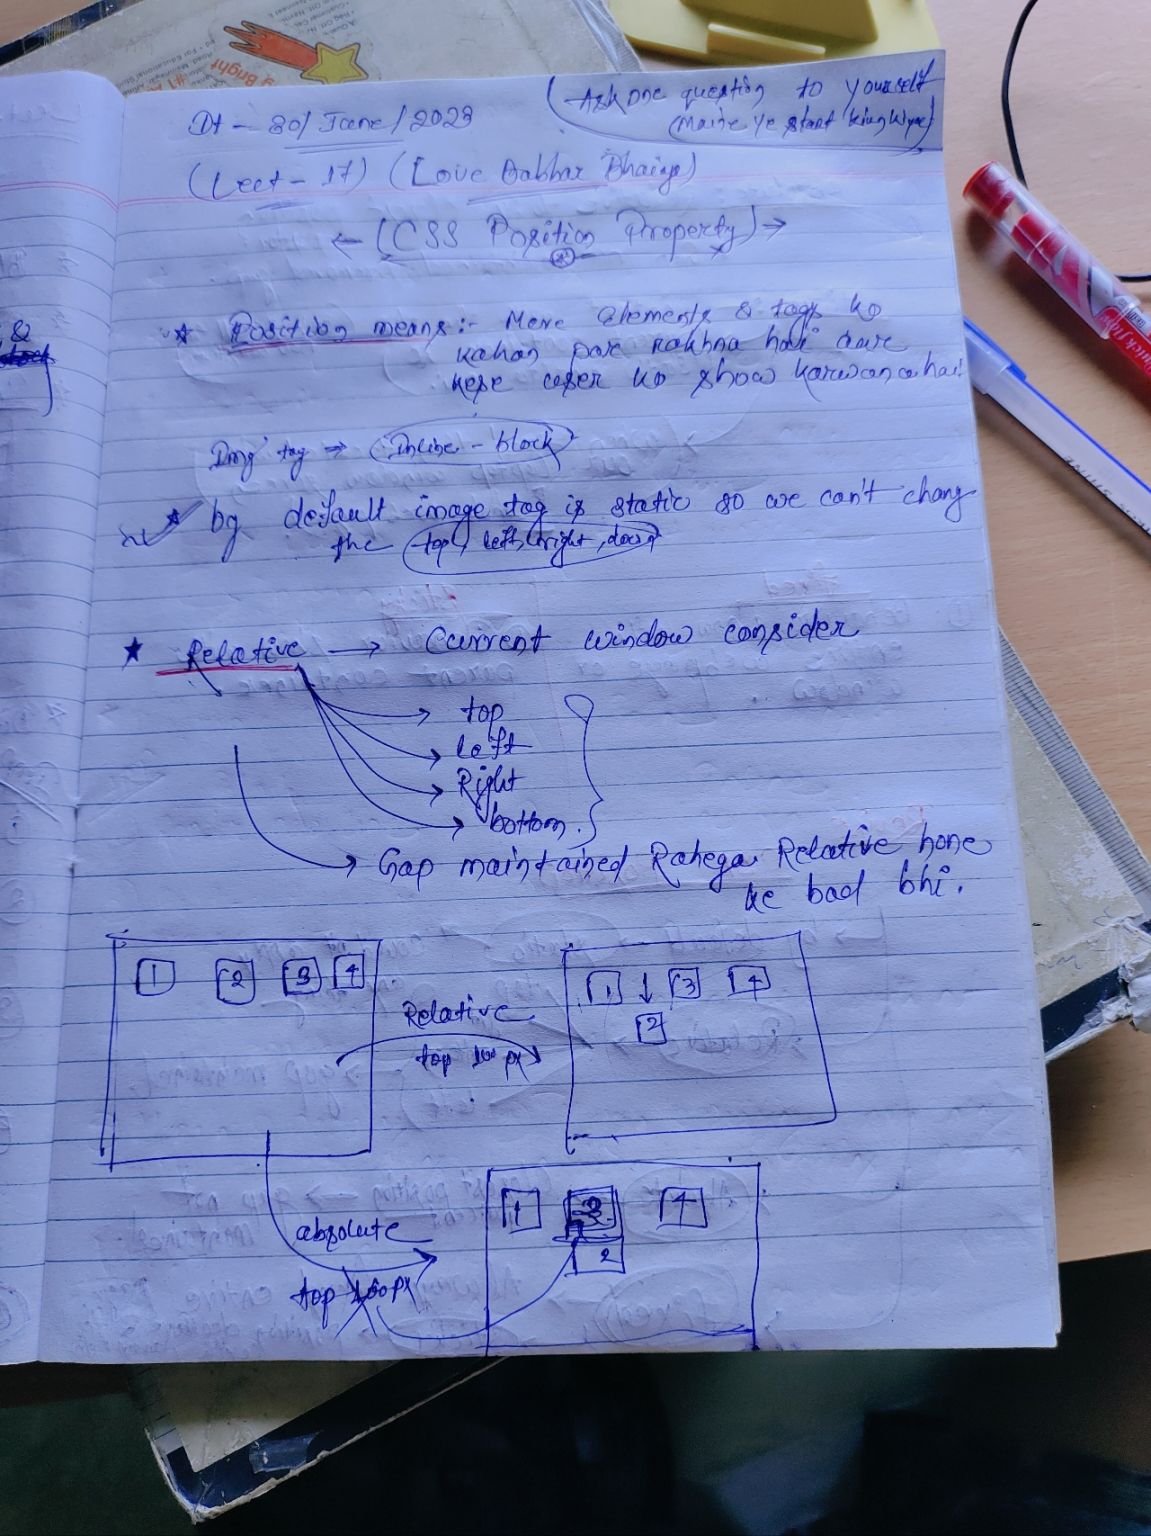 Ask one question to yourself
(Maine ye start kiun kiya)
Dt - 30/June/2023
(Lect - 17) (Love Babbar Bhaiya)
← (CSS Position Property) →
&
★ Position means:- Mere elements & tags ko
kahan par rakhna hai aur
kese user ko show karwana hai
Img tag → Inline-block
★ by default image tag is static so we can't chang
the (top, left, right, down)
★ Relative → Current window consider
top
left
Right
bottom.
→ Gap maintained Rahega Relative hone
ke bad bhi.
1 2 3 4
Relative
top 100 px
1 ↓ 3 4
2
absolute
top 100px
1 3 4
2